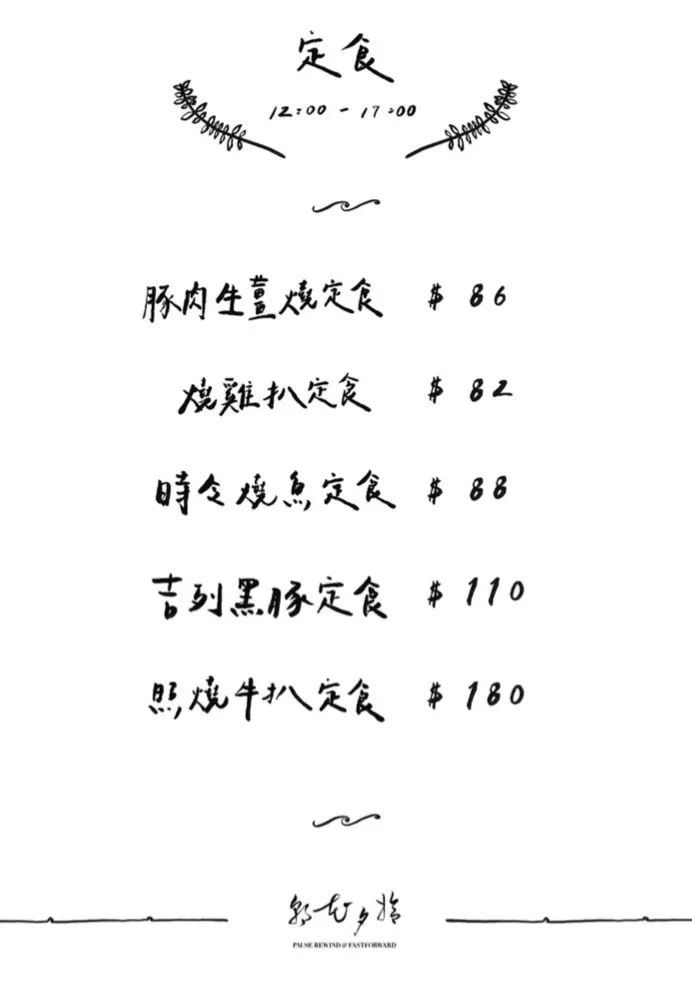 定食
12:00 - 17:00
豚肉生薑燒定食 $ 86
燒雞扒定食 $ 82
時令燒魚定食 $ 88
吉列黑豚定食 $ 110
照燒牛扒定食 $ 180
朝花夕拾
PAUSE REWIND & FASTFORWARD